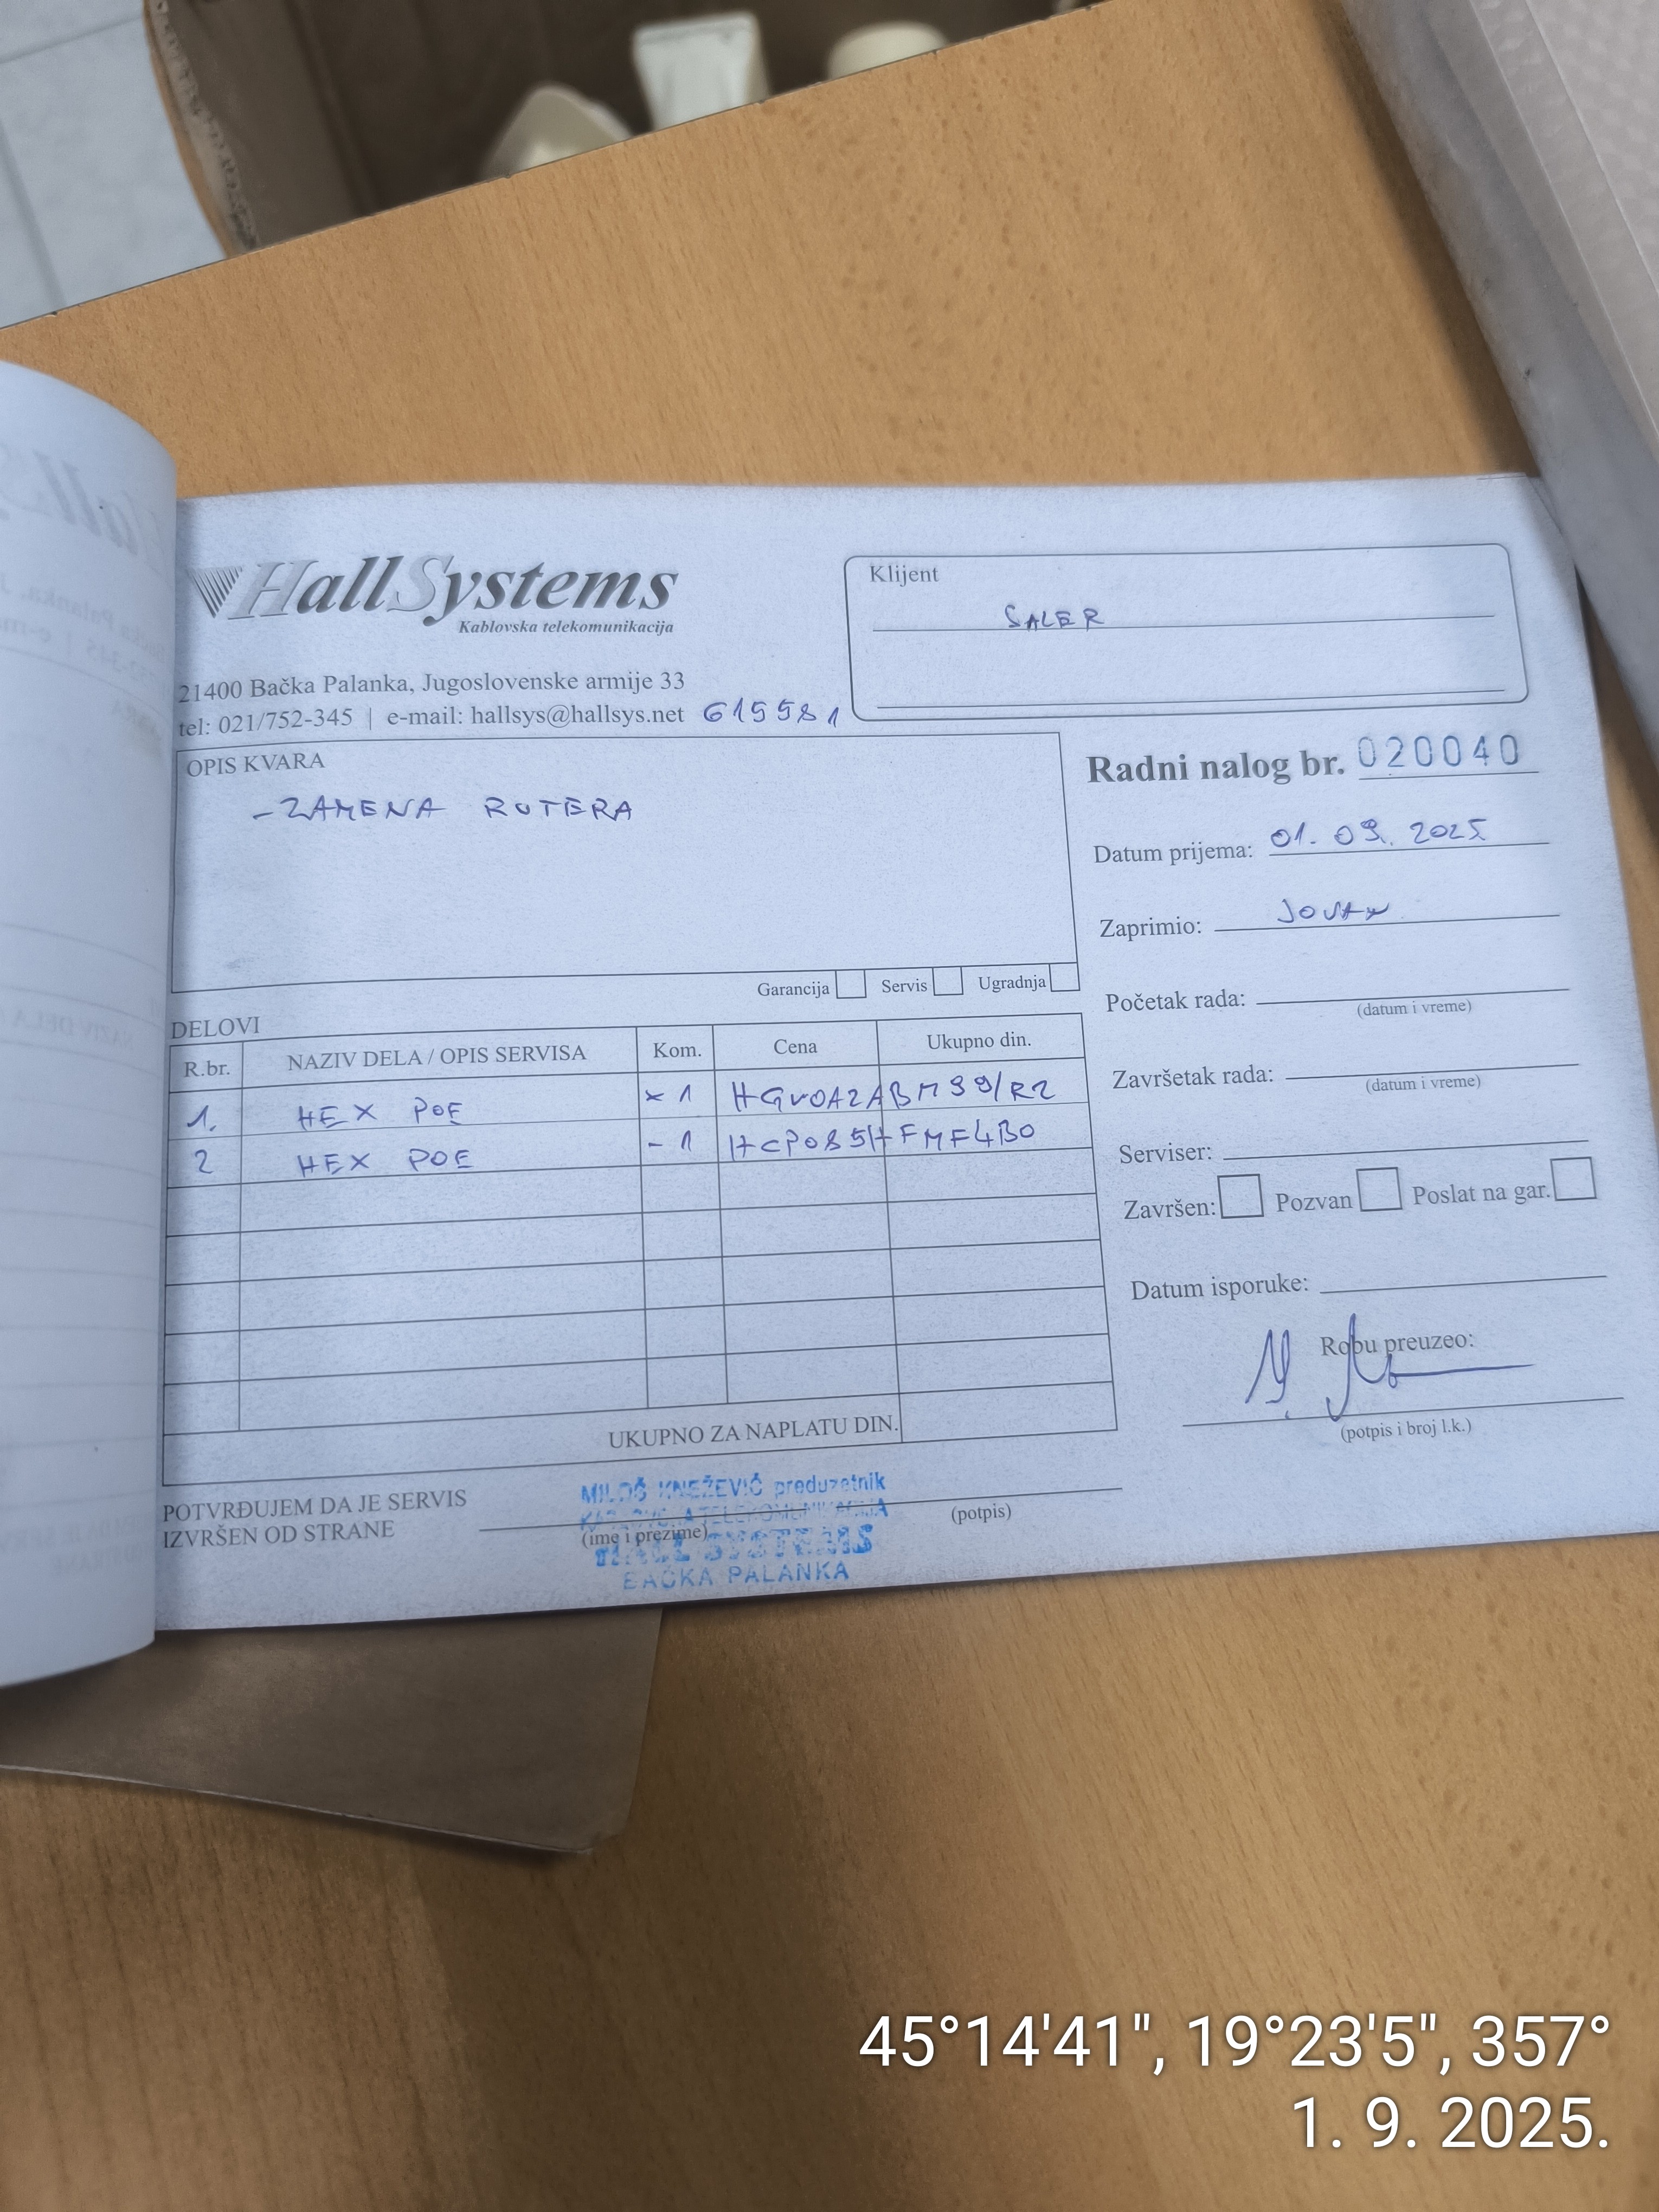 HallSystems
Kablovska telekomunikacija
21400 Bačka Palanka, Jugoslovenske armije 33
tel: 021/752-345 | e-mail: hallsys@hallsys.net 615581
Klijent
ŠALER
OPIS KVARA
-ZAMENA RUTERA
Garancija Servis Ugradnja
Radni nalog br. 020040
Datum prijema: 01. 09. 2025
Zaprimio: JOVAN
Početak rada:
(datum i vreme)
Završetak rada:
(datum i vreme)
Serviser:
Završen: Pozvan Poslat na gar.
Datum isporuke:
Robu preuzeo:
(potpis i broj l.k.)
DELOVI
R.br. NAZIV DELA / OPIS SERVISA Kom. Cena Ukupno din.
1. HEX POE × 1 HGV0A2ABM39/R2
2 HEX POE - 1 HCP085HFMF4B0
UKUPNO ZA NAPLATU DIN.
POTVRĐUJEM DA JE SERVIS
IZVRŠEN OD STRANE
(ime i prezime)
(potpis)
MILOŠ KNEŽEVIĆ preduzetnik
KABLOVSKA TELEKOMUNIKACIJA
HALL SYSTEMS
BAČKA PALANKA
45°14'41", 19°23'5", 357°
1. 9. 2025.